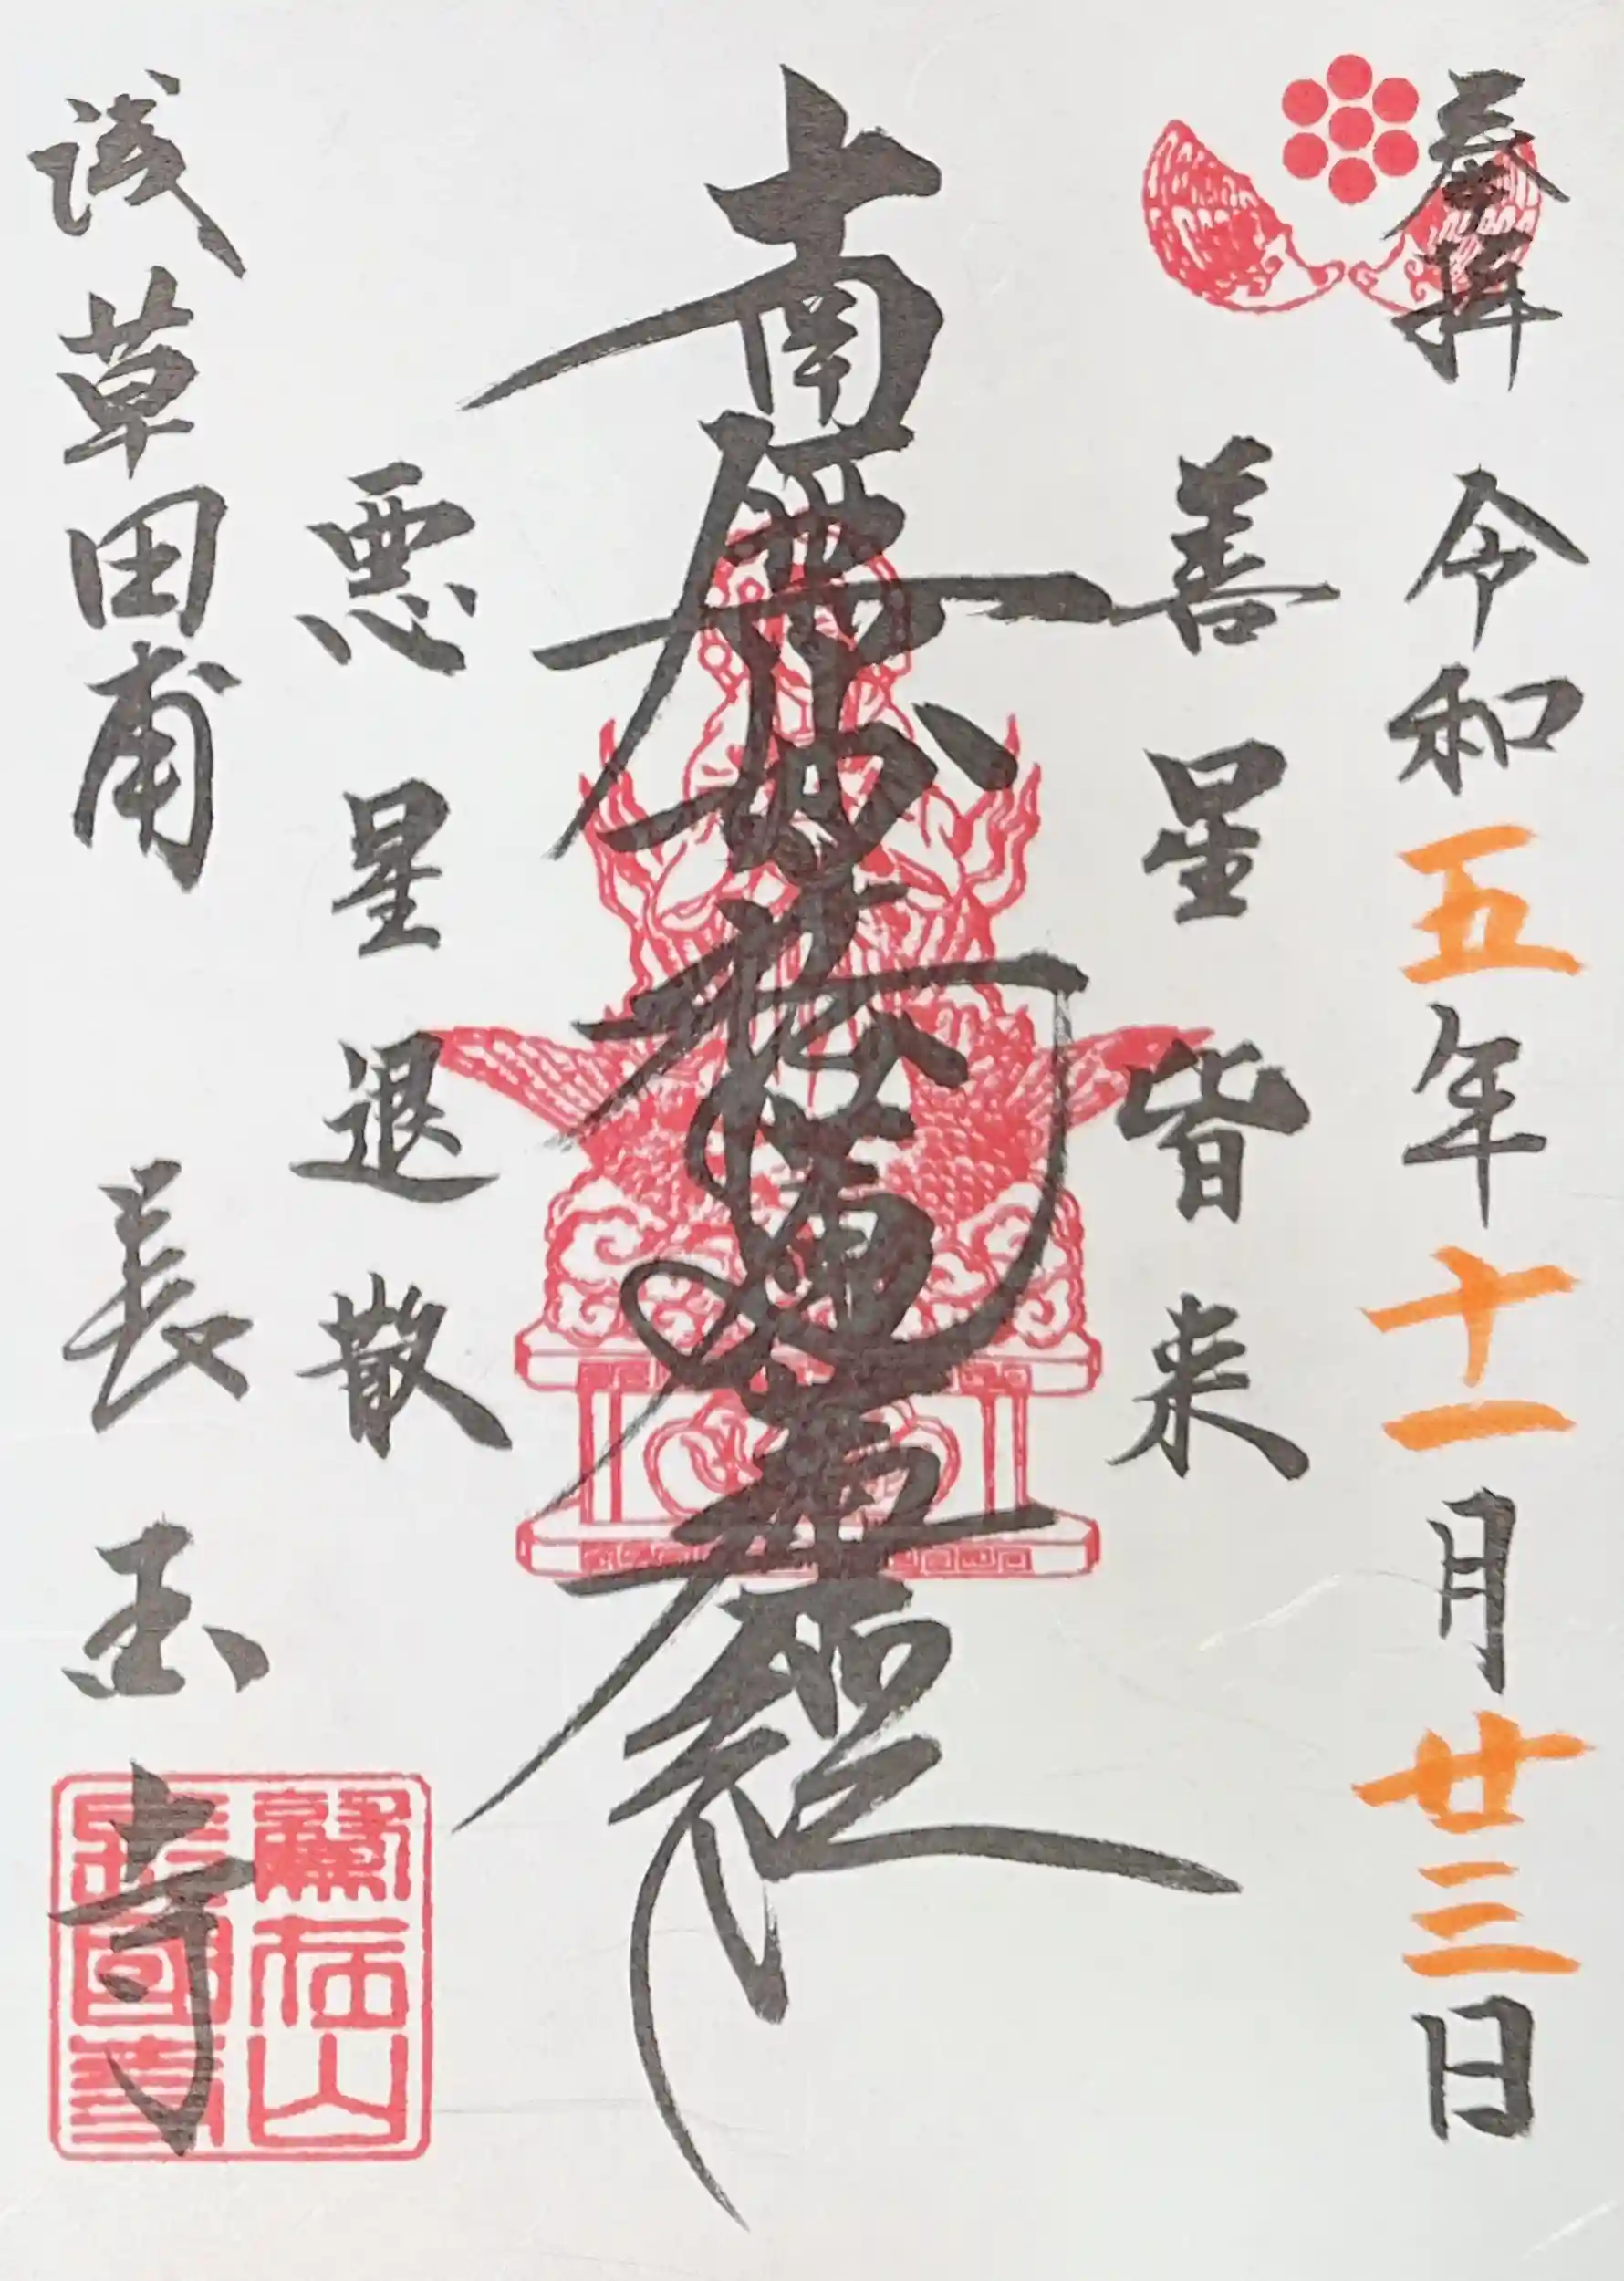 奉拝 令和五年十一月廿三日
善星皆来
南無妙法蓮華経
悪星退散
浅草田甫 長国寺
鷲在山
長國寺